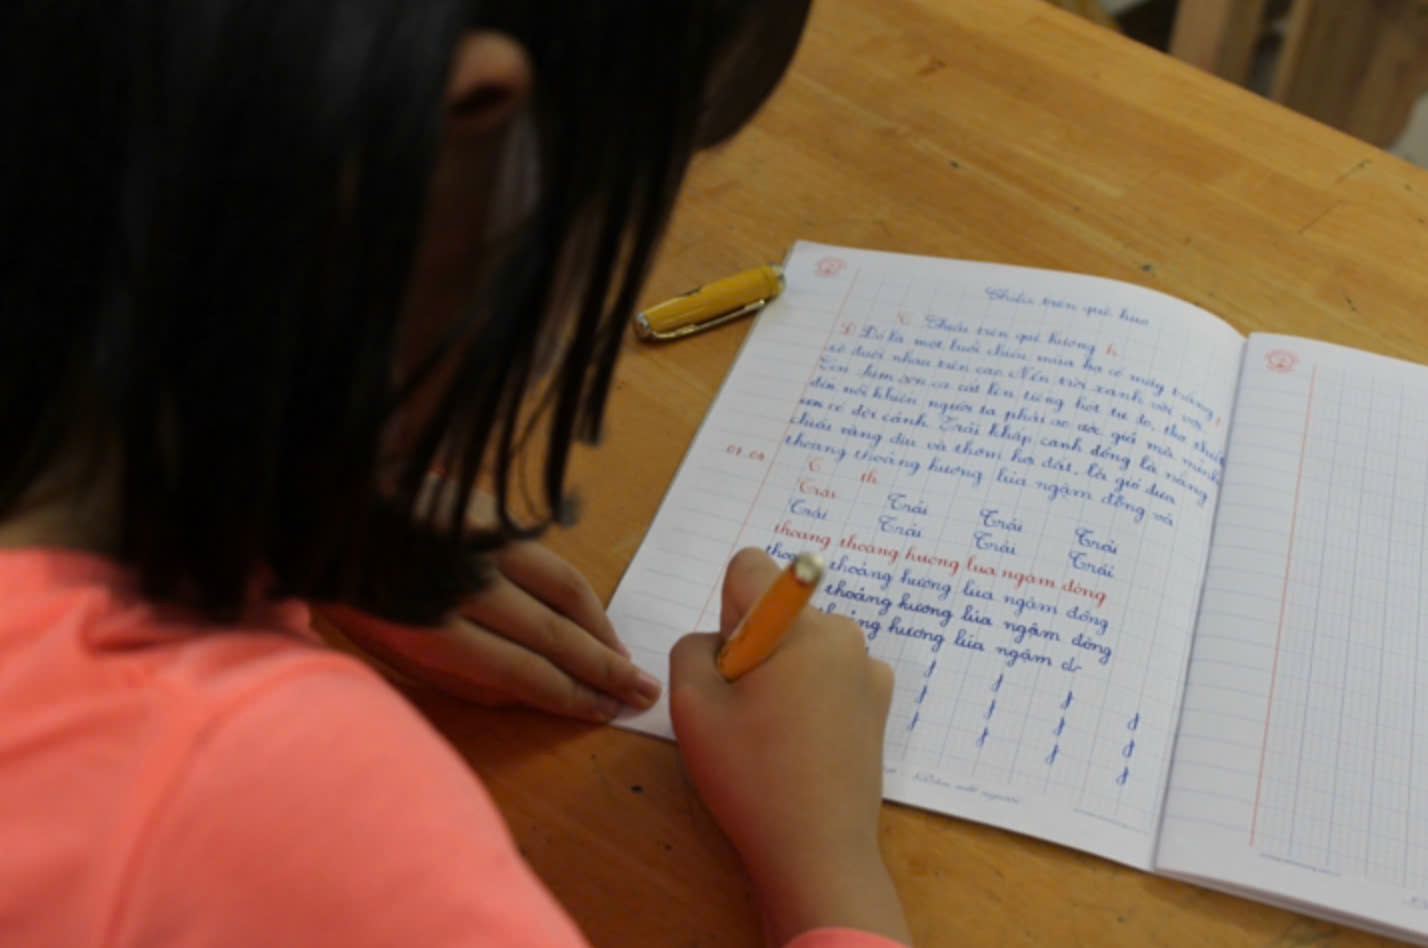 Chiều trên quê hươ
C
Chiều trên quê hương h
Đ Đó là một buổi chiều mùa hạ có mây trắng
xô đuổi nhau trên cao. Nền trời xanh vời vợi.
Con chim sơn ca cất lên tiếng hót tự do, tha thiết
đến nỗi khiến người ta phải ao ước giá mà mình
có đôi cánh. Trải khắp cánh đồng là nắng
chiều vàng dịu và thơm hơi đất, là gió đưa
thoang thoảng hương lúa ngậm đòng và
T th
Trải
Trải Trải Trải
Trải Trải Trải Trải
thoang thoảng hương lúa ngậm đòng
thoảng hương lúa ngậm đòng
thoảng hương lúa ngậm đòng
hương lúa ngậm đ